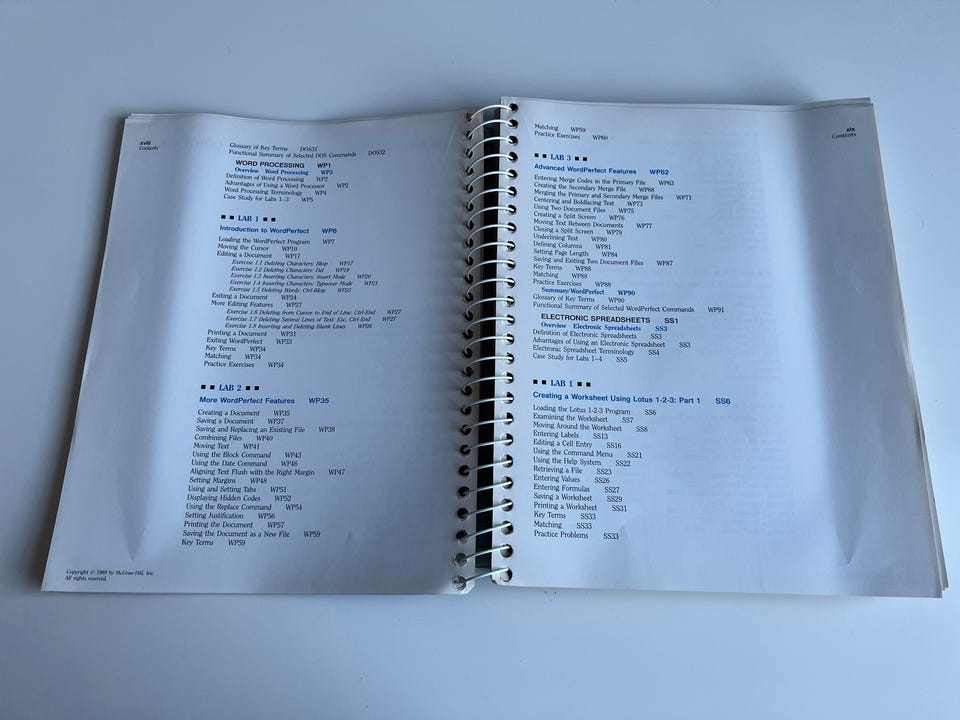 xviii
Contents
Glossary of Key Terms DOS31
Functional Summary of Selected DOS Commands DOS32
WORD PROCESSING WP1
Overview Word Processing WP2
Definition of Word Processing WP2
Advantages of Using a Word Processor WP2
Word Processing Terminology WP4
Case Study for Labs 1–3 WP5
■ ■ LAB 1 ■ ■
Introduction to WordPerfect WP6
Loading the WordPerfect Program WP7
Moving the Cursor WP10
Editing a Document WP17
Exercise 1.1 Deleting Characters: Bksp WP17
Exercise 1.2 Deleting Characters: Del WP19
Exercise 1.3 Inserting Characters: Insert Mode WP20
Exercise 1.4 Inserting Characters: Typeover Mode WP21
Exercise 1.5 Deleting Words: Ctrl-Bksp WP23
Exiting a Document WP24
More Editing Features WP27
Exercise 1.6 Deleting from Cursor to End of Line: Ctrl-End WP27
Exercise 1.7 Deleting Several Lines of Text: Esc, Ctrl-End WP27
Exercise 1.8 Inserting and Deleting Blank Lines WP28
Printing a Document WP31
Exiting WordPerfect WP33
Key Terms WP34
Matching WP34
Practice Exercises WP34
■ ■ LAB 2 ■ ■
More WordPerfect Features WP35
Creating a Document WP35
Saving a Document WP37
Saving and Replacing an Existing File WP38
Combining Files WP40
Moving Text WP41
Using the Block Command WP43
Using the Date Command WP46
Aligning Text Flush with the Right Margin WP47
Setting Margins WP48
Using and Setting Tabs WP51
Displaying Hidden Codes WP52
Using the Replace Command WP54
Setting Justification WP56
Printing the Document WP57
Saving the Document as a New File WP59
Key Terms WP59
Copyright © 1989 by McGraw-Hill, Inc.
All rights reserved.
xix
Contents
Matching WP59
Practice Exercises WP60
■ ■ LAB 3 ■ ■
Advanced WordPerfect Features WP62
Entering Merge Codes in the Primary File WP63
Creating the Secondary Merge File WP68
Merging the Primary and Secondary Merge Files WP71
Centering and Boldfacing Text WP73
Using Two Document Files WP75
Creating a Split Screen WP76
Moving Text Between Documents WP77
Closing a Split Screen WP79
Underlining Text WP80
Defining Columns WP81
Setting Page Length WP84
Saving and Exiting Two Document Files WP87
Key Terms WP88
Matching WP88
Practice Exercises WP88
Summary WordPerfect WP90
Glossary of Key Terms WP90
Functional Summary of Selected WordPerfect Commands WP91
ELECTRONIC SPREADSHEETS SS1
Overview Electronic Spreadsheets SS3
Definition of Electronic Spreadsheets SS3
Advantages of Using an Electronic Spreadsheet SS3
Electronic Spreadsheet Terminology SS4
Case Study for Labs 1–4 SS5
■ ■ LAB 1 ■ ■
Creating a Worksheet Using Lotus 1-2-3: Part 1 SS6
Loading the Lotus 1-2-3 Program SS6
Examining the Worksheet SS7
Moving Around the Worksheet SS8
Entering Labels SS13
Editing a Cell Entry SS16
Using the Command Menu SS21
Using the Help System SS22
Retrieving a File SS23
Entering Values SS26
Entering Formulas SS27
Saving a Worksheet SS29
Printing a Worksheet SS31
Key Terms SS33
Matching SS33
Practice Problems SS33